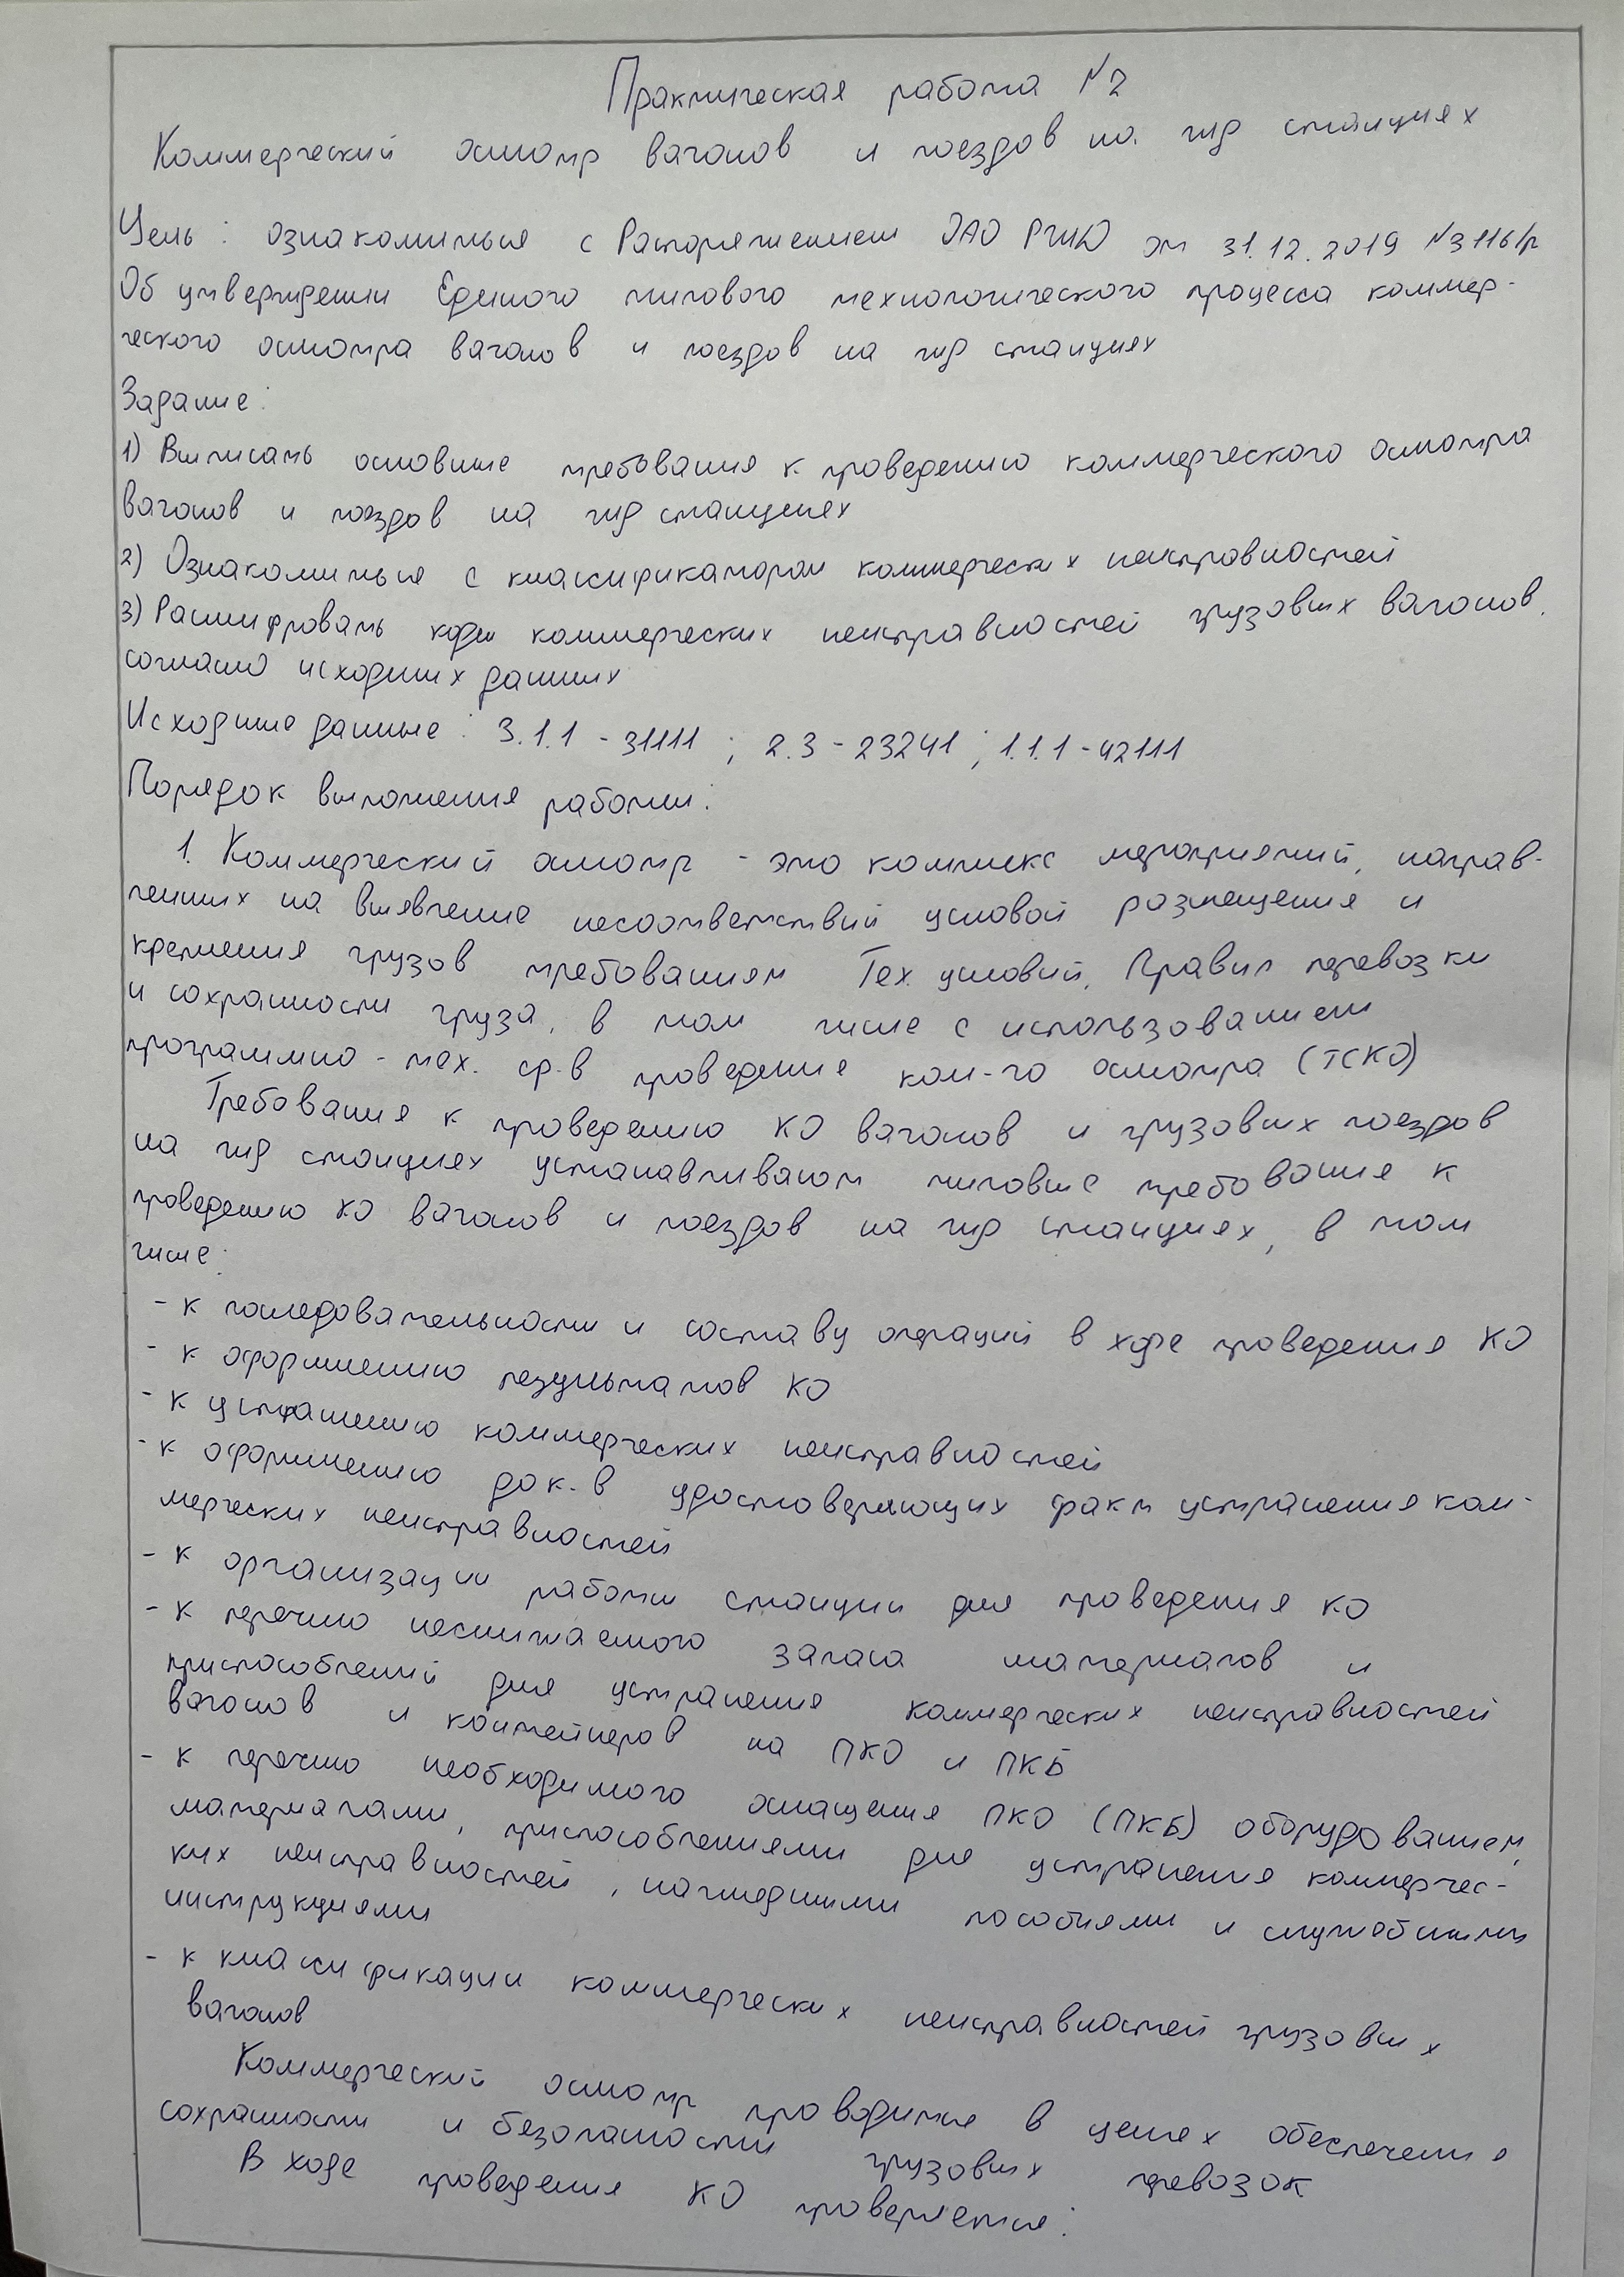 Практическая работа №2
Коммерческий осмотр вагонов и поездов на жд станциях
Цель: ознакомиться с Распоряжением ОАО РЖД от 31.12.2019 №3116/р
Об утверждении Единого типового технологического процесса коммер-
ческого осмотра вагонов и поездов на жд станциях
Задание:
1) Выписать основные требования к проведению коммерческого осмотра
вагонов и поездов на жд станциях
2) Ознакомиться с классификатором коммерческих неисправностей
3) Расшифровать коды коммерческих неисправностей грузовых вагонов,
согласно исходных данных
Исходные данные: 3.1.1 - 31111; 2.3 - 23241; 1.1.1 - 42111
Порядок выполнения работы:
1. Коммерческий осмотр - это комплекс мероприятий, направ-
ленных на выявление несоответствий условий размещения и
крепления грузов требованиям Тех. условий, Правил перевозки
и сохранности груза, в том числе с использованием
программно-тех. ср-в проведение ком-го осмотра (ТСКО)
Требования к проведению КО вагонов и грузовых поездов
на жд станциях устанавливают типовые требования к
проведению КО вагонов и поездов на жд станциях, в том
числе:
- к последовательности и составу операций в ходе проведения КО
- к оформлению результатов КО
- к устранению коммерческих неисправностей
- к оформлению док-в удостоверяющих факт устранения ком-
мерческих неисправностей
- к организации работы станции для проведения КО
- к перечню неснижаемого запаса материалов и
приспособлений для устранения коммерческих неисправностей
вагонов и контейнеров на ПКО и ПКБ
- к перечню необходимого оснащения ПКО (ПКБ) оборудованием,
материалами, приспособлениями для устранения коммерчес-
ких неисправностей, наглядными пособиями и служебными
инструкциями
- к классификации коммерческих неисправностей грузовых
вагонов
Коммерческий осмотр проводится в целях обеспечения
сохранности и безопасности грузовых перевозок
В ходе проведения КО проверяется: